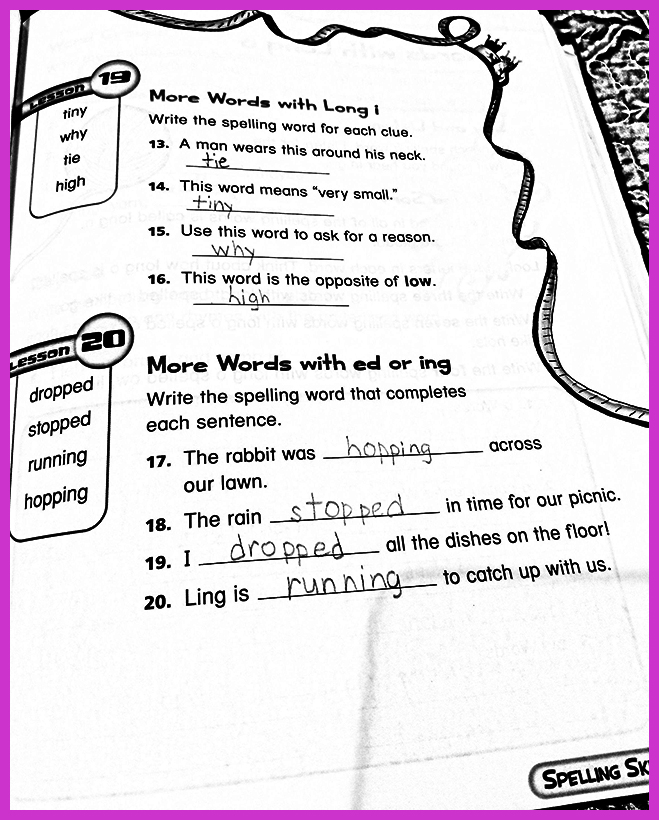 Lesson 19
tiny
why
tie
high
More Words with Long i
Write the spelling word for each clue.
13. A man wears this around his neck.
tie
14. This word means “very small.”
tiny
15. Use this word to ask for a reason.
why
16. This word is the opposite of low.
high
Lesson 20
dropped
stopped
running
hopping
More Words with ed or ing
Write the spelling word that completes
each sentence.
17. The rabbit was hopping across
our lawn.
18. The rain stopped in time for our picnic.
19. I dropped all the dishes on the floor!
20. Ling is running to catch up with us.
SPELLING SK